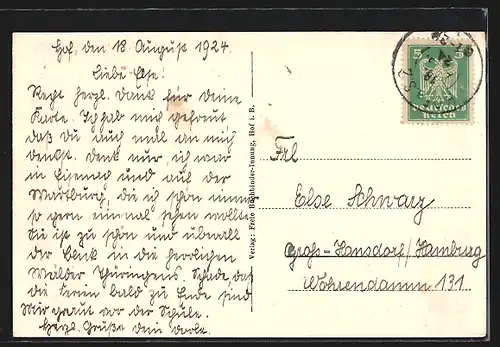 Hof, den 18. August 1924.
Liebe Else!
Recht herzl. Dank für deine
Karte. Ich hab mich gefreut
daß du auch mal an mich
denkst. Denk nur, ich war
in Eisenach und auf der
Wartburg, die ich schon immer
so gern einmal sehen wollte
Sie ist zu schön und überall
der Blick in die herrlichen
Wälder Thüringens. Schade, daß
die Ferien bald zu Ende sind
Mir graut vor der Schule.
Herzl. Grüße dein
Verlag: Freie Buchbinder-Innung, Hof i. B.
5 5
Deutsches
Reich
Frl
Else Schwarz
Groß-Hansdorf/Hamburg
Wöhrendamm 131